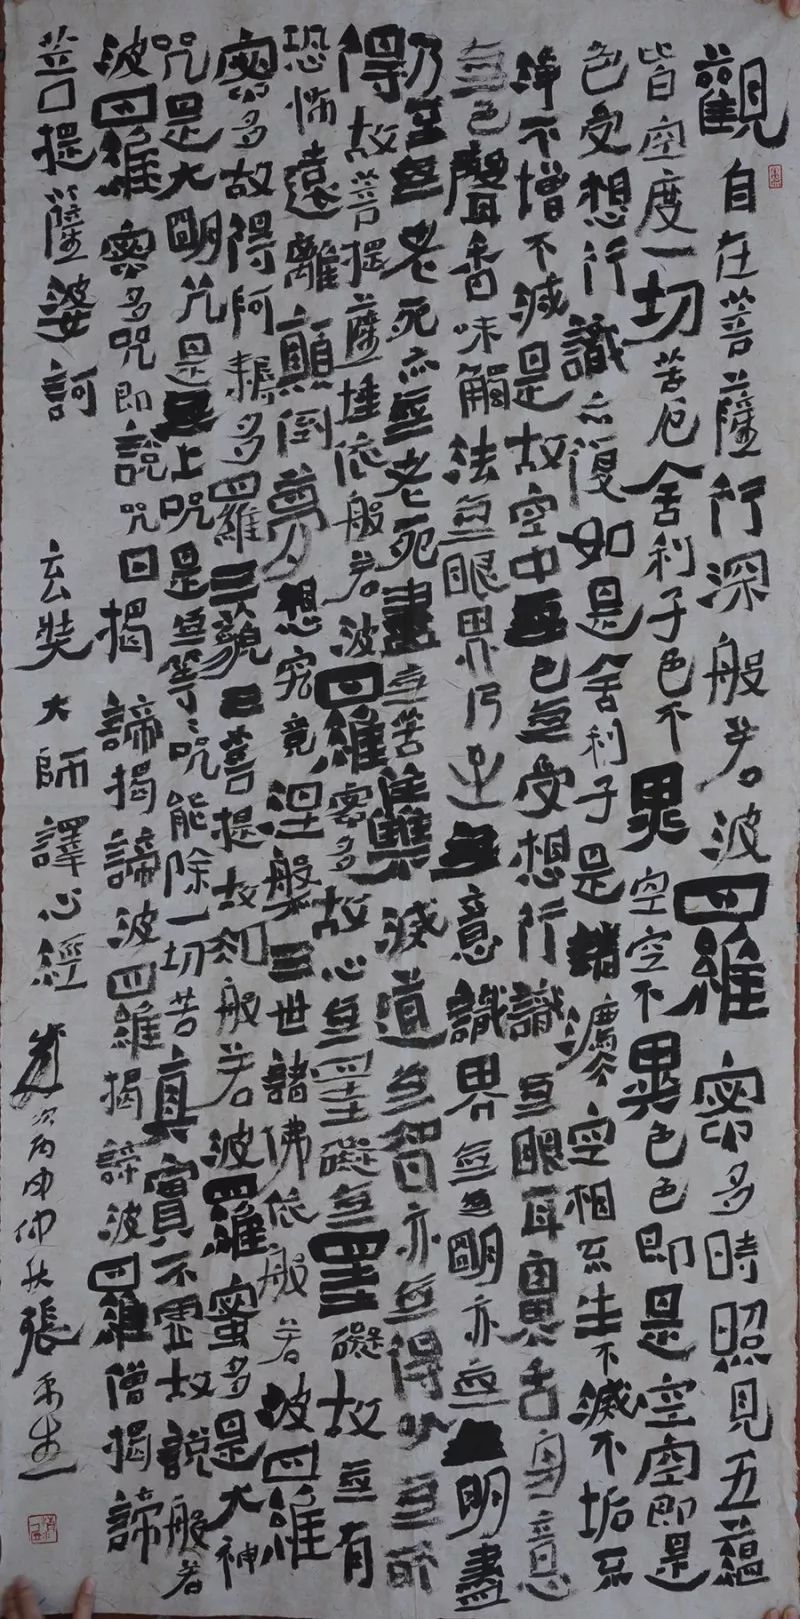 觀自在菩薩行深般若波羅密多時照見五蘊
皆空度一切苦厄舍利子色不異空空不異色色即是空空即是
色受想行識亦復如是舍利子是諸法空相不生不滅不垢不
淨不增不減是故空中無色無受想行識無眼耳鼻舌身意
無色聲香味觸法無眼界乃至無意識界無無明亦無無明盡
乃至無老死亦無老死盡無苦集滅道無智亦無得以無所
得故菩提薩埵依般若波羅密多故心無罣礙無罣礙故無有
恐怖遠離顛倒夢想究竟涅槃三世諸佛依般若波羅
密多故得阿耨多羅三藐三菩提故知般若波羅蜜多是大神
咒是大明咒是無上咒是無等等咒能除一切苦真實不虛故說般若
波羅密多咒即說咒曰揭諦揭諦波羅揭諦波羅僧揭諦
菩提薩婆訶
玄奘大師譯心經 歲次丙申仲秋張